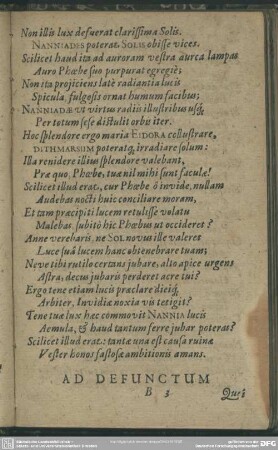 Non illis lux defuerat clarissima Solis.
NANNIADES poterat SOLIS obiisse vices.
Scilicet haud ita ad auroram vestra aurea lampas
Auro Phœbe suo purpurat egregiè;
Non ita projiciens latè radiantia lucis
Spicula, fulgesis ornat humum facibus;
NANNIADÆ ut virtus radiis illustribus usq́;
Per totum sese distulit orbis iter.
Hoc splendore ergo maria EIDORA collustrare,
DITHMARSUM poteratq́, irradiare solum:
Illa renidere illius splendore valebant,
Præ quo, Phœbe, tuæ nil mihi sunt faculæ!
Scilicet illud erat, cur Phœbe ô invide, nullam
Audebas nocti huic conciliare moram,
Et tam præcipiti lucem retulisse volatu
Malebas, subitò hic Phœbus ut occideret?
Anne vereba ris, ne SOL novus ille valeret
Luce suâ lucem hanc obtenebrare tuam;
Neve tibi rutilo certans jubare, alto apice urgens
Astra, decus jubaris perderet acre tui?
Ergo tene etiam lucis præclare dieiq́,
Arbiter, Invidiæ noxia vis tetigit?
Tene tuæ lux hæc commovit NANNIA lucis
Aemula, & haud tantum ferre jubar poteras?
Scilicet illud erat: tantæ una est causa ruinæ
Vester honos fastosæ ambitionis amans.
AD DEFUNCTUM
B 3